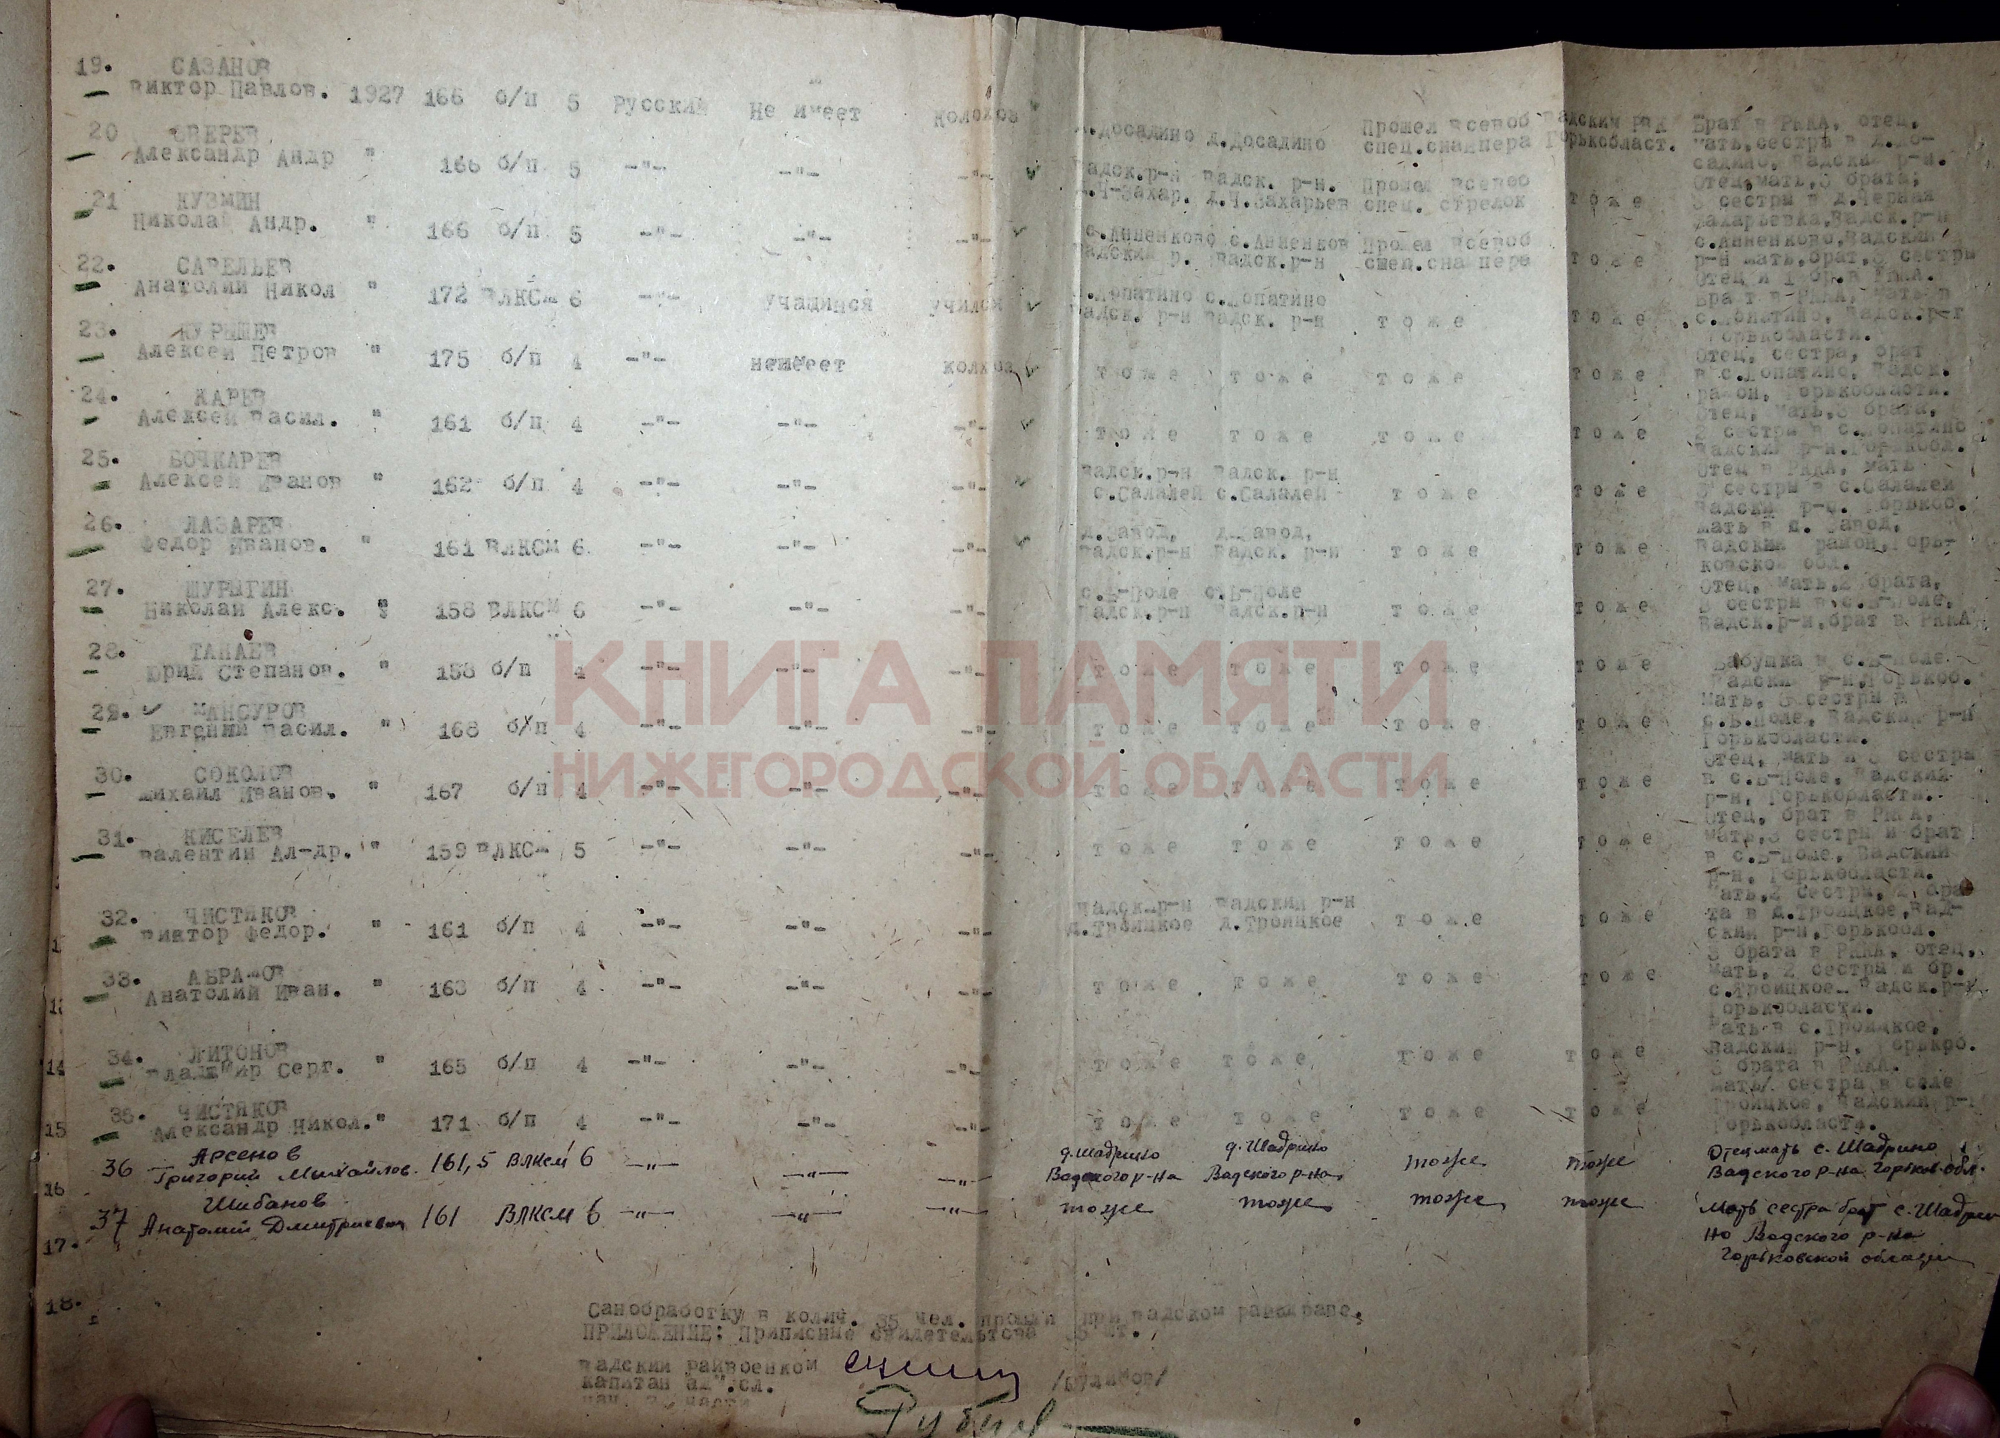 19. САЗАНОВ
Виктор Павлов. 1927 166 б/п 5 Русский Не имеет Колохоз
20 ЗВЕРЕВ д.Досадино д.Досадино Прошел Всевоб Вадским РВК Брат в РККА, отец,
Александр Андр " 166 б/п 5 -"- -"- -"- Вадск.р-н Вадск. р-н. спец.снайпера Горьобласт. мать,сестра в д.До-
садино, Вадский р-н.
21 КУЗМИН Д.Ч-Захар. д.Ч.Захарьев Прошел Всевоб тоже Отец,мать,3 брата,
Николай Андр. " 166 б/п 5 -"- -"- -"- спец. стрелок 3 сестры в д.Черная
Захарьевка,Вадск.р-н
22. САВЕЛЬЕВ с.Анненково с.Анненков Прошел Всевоб с.Анненково,Вадский
Анатолий Никол " 172 ВЛКСМ 6 -"- учащийся учился Вадский р. Вадск.р-н спец.снайпера тоже р-н мать,брат,3 сестры
Отец и 1 бр.в РККА.
23. КУРЫШЕВ с.Лопатино с.Лопатино Брат в РККА, мать в
Алексей Петров " 175 б/п 4 -"- неимеет колхоз Вадск. р-н Вадск. р-н тоже тоже с.Лопатино, Вадск.р-н
Горькобласти.
24. КАРЕВ Отец, сестра, брат
Алексей Васил. " 161 б/п 4 -"- -"- -"- тоже тоже тоже тоже в с.Лопатино, Вадск.
район, Горькобласти.
25. БОЧКАРЕВ Отец, мать,3 брата,
Алексей Иванов " 162 б/п 4 -"- -"- -"- тоже тоже тоже тоже 2 сестры в с.Лопатино
Вадский р-н.Горькобл.
26. ЛАЗАРЕВ Вадск.р-н Вадск. р-н Отец в РККА, мать
Федор Иванов. " 161 ВЛКСМ 6 -"- -"- -"- с.Салалей с.Салалей тоже тоже 3 сестры в с.Салалей
Вадский р-н. Горькоб.
27. ШУРЫГИН д.Завод, д.Завод, Мать в д. Завод,
Николай Алекс. " 158 ВЛКСМ 6 -"- -"- -"- Вадск.р-н Вадск. р-н тоже тоже Вадский район,Горь-
ковской обл.
28. ТАНАЕВ с.В-Поле с.В-Поле Отец, мать,2 брата,
Юрий Степанов. " 158 б/п 4 -"- -"- -"- Вадск.р-н Вадск.р-н тоже тоже 3 сестры в с.В-Поле,
Вадск.р-н,брат в РККА
29. МАНСУРОВ Бабушка в с.В-Поле
Евгений Васил. " 168 б/п 4 -"- -"- -"- тоже тоже тоже тоже Вадский р-н,Горькоб.
30. СОКОЛОВ Мать, 3 сестры в
Михаил Иванов. " 167 б/п 4 -"- -"- -"- тоже тоже тоже тоже с.В.Поле, Вадский р-н
Горькобласти.
31. КИСЕЛЕВ Отец, мать и 3 сестры
Валентин Ал-др. " 159 ВЛКСМ 5 -"- -"- -"- тоже тоже тоже тоже в с.В-Поле, Вадский
р-н, Горькобласти.
Отец, брат в РККА,
тоже тоже тоже тоже мать,3 сестры и брат
в с.В-Поле, Вадский
р-н, Горькобласти.
32. ЧИСТЯКОВ Вадск.р-н Вадский р-н Мать,2 сестры,
Виктор Федор. " 161 б/п 4 -"- -"- -"- д.Троицкое д.Троицкое тоже тоже та в д.Троицкое,Вад-
ский р-н,Горькобл.
33. АБРАМОВ 3 брата в РККА, отец,
Анатолий Иван. " 163 б/п 4 -"- -"- -"- тоже тоже тоже тоже мать, 2 сестры и бр.
с.Троицкое Вадск.р-н
Горькобласти.
34. ЛИТОНОВ Мать в с.Троицкое,
Владимир Серг. " 165 б/п 4 -"- -"- -"- тоже тоже тоже тоже Вадский р-н, Горькоб.
3 брата в РККА.
35. ЧИСТЯКОВ мать, сестра в селе
Александр Никол." 171 б/п 4 -"- -"- -"- тоже тоже тоже тоже Троицкое, Вадский р-н
Горькобласти.
36 Арсенов д.Шадрино д.Шадрино Отец мать с. Шадрино
Григорий Михайлов. 161,5 ВЛКСМ 6 -"- -"- -"- Вадского р-на Вадского р-на тоже тоже Вадского р-на Горьков.обл.
37 Шибанов
Анатолий Дмитриевич 161 ВЛКСМ 6 -"- -"- -"- тоже тоже тоже тоже Мать сестра брат с. Шадри
но Вадского р-на
Горьковской области
14
15
16
17.
18.
Санобработку в колич. 35 чел. прошли при Вадском
ПРИЛОЖЕНИЕ: Приписные свидетельтсва 35 шт.
Вадский райвоенком
капитан адм.сл.
нач. части
КНИГА ПАМЯТИ
НИЖЕГОРОДСКОЙ ОБЛАСТИ